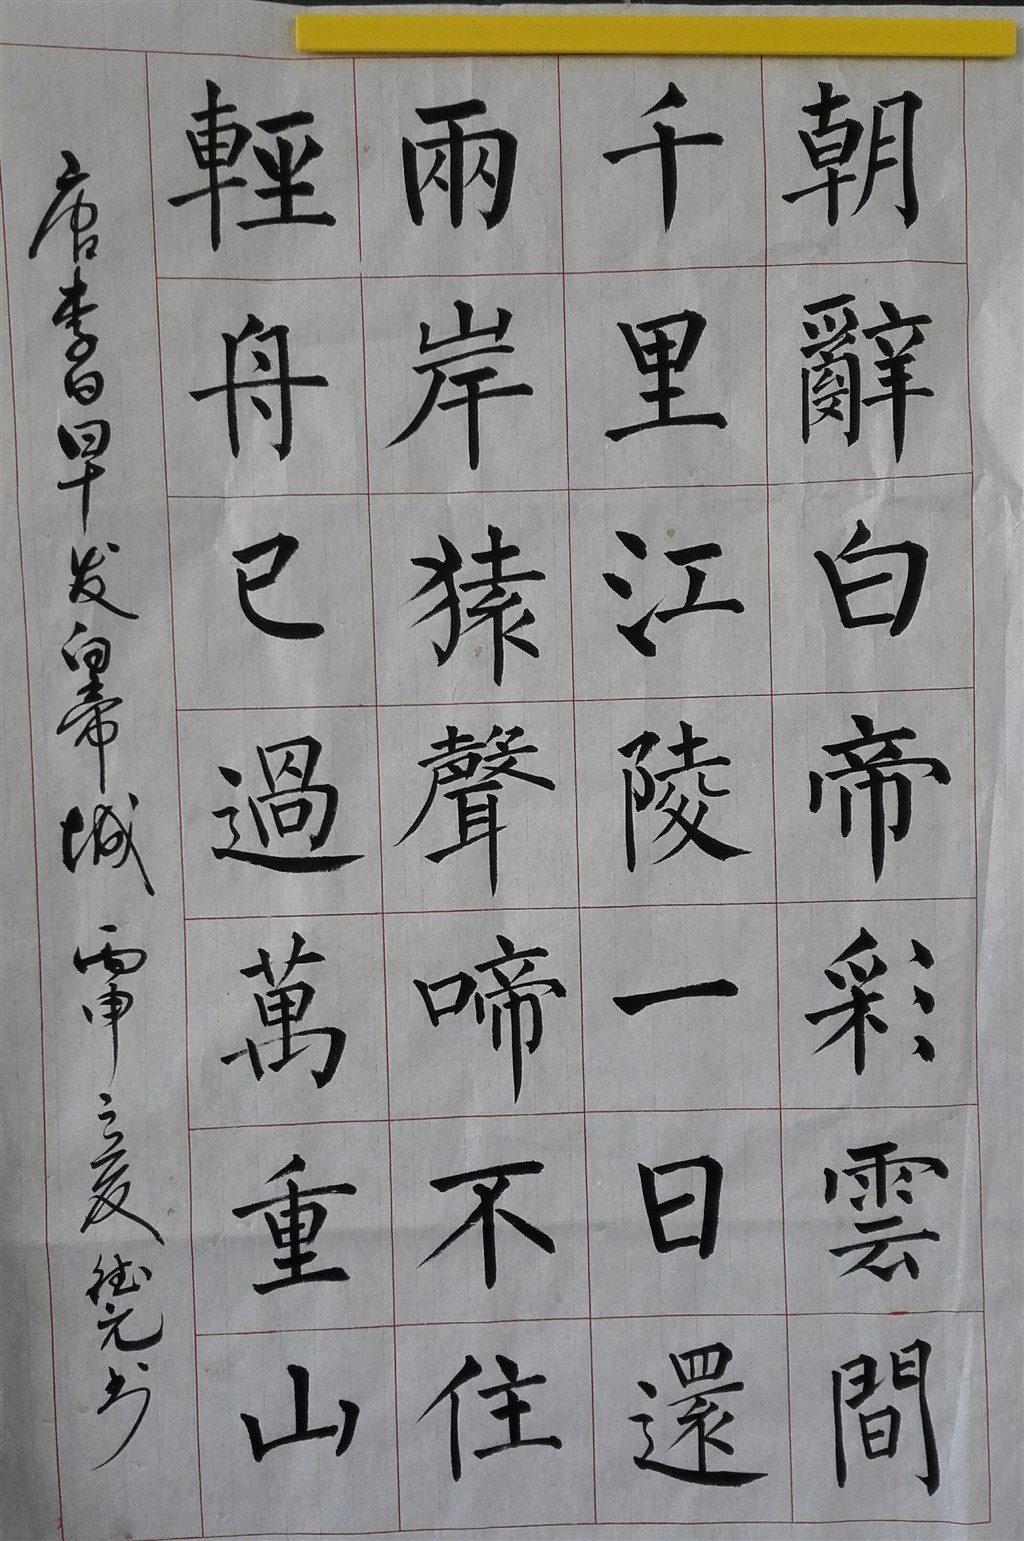 朝辭白帝彩雲間
千里江陵一日還
兩岸猿聲啼不住
輕舟已過萬重山
唐李白早发白帝城 丙申立夏德元书